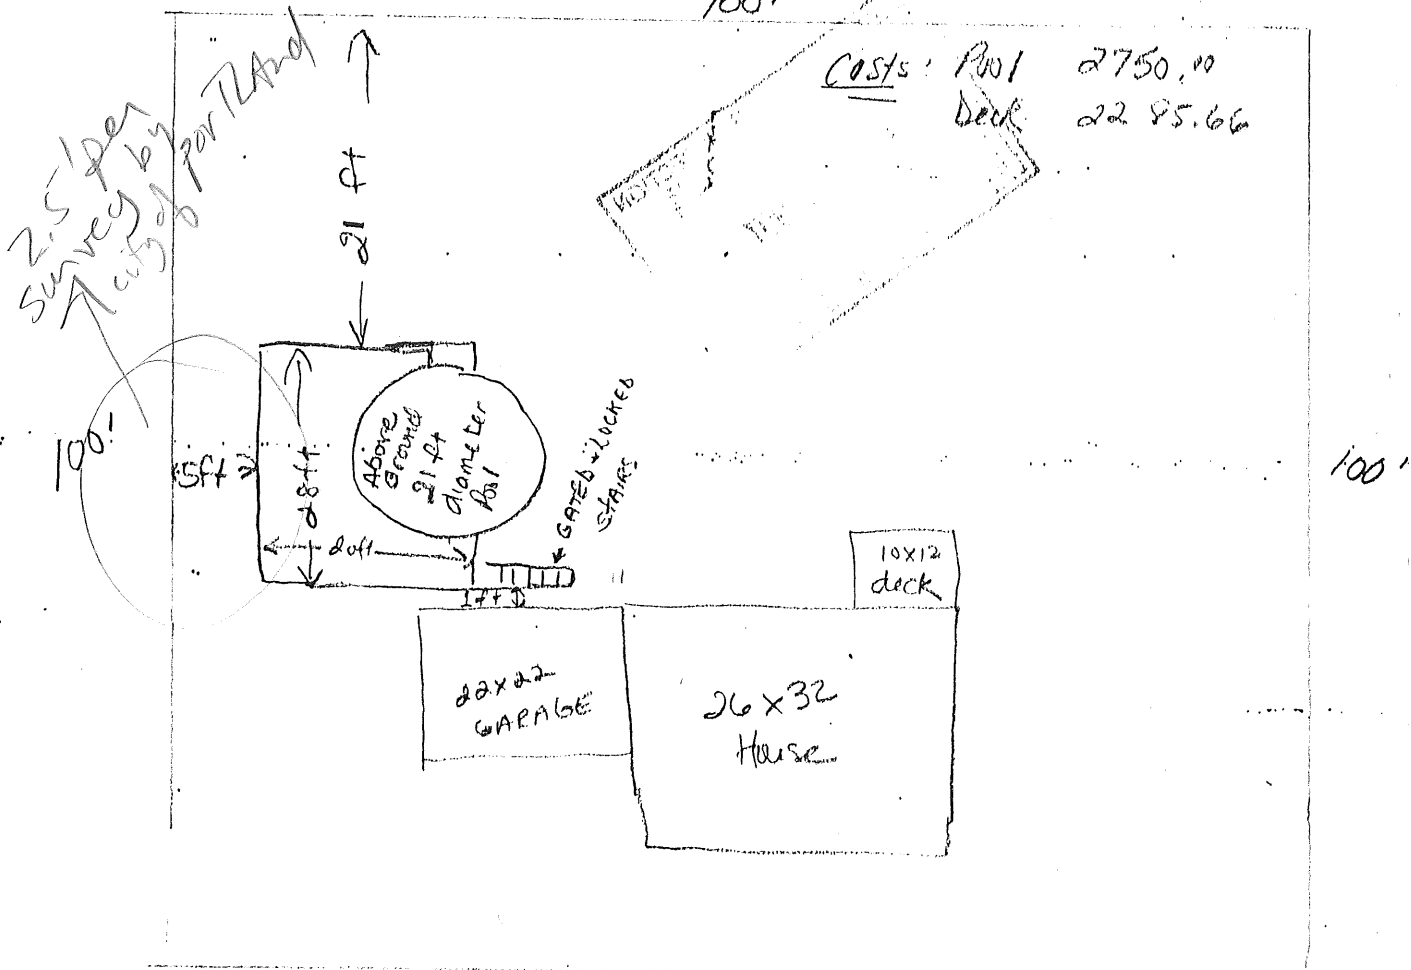 100'
Costs: Pool 2750.00
Deck 2285.66
2.5' per
survey by
city of porTLAnd
21 ft
100'
5ft
28ft
20ft
Above
Ground
21 ft
diameter
Pool
GATED & LOCKED
STAIRS
1ft
100'
10x12
deck
22x22
GARAGE
26x32
House